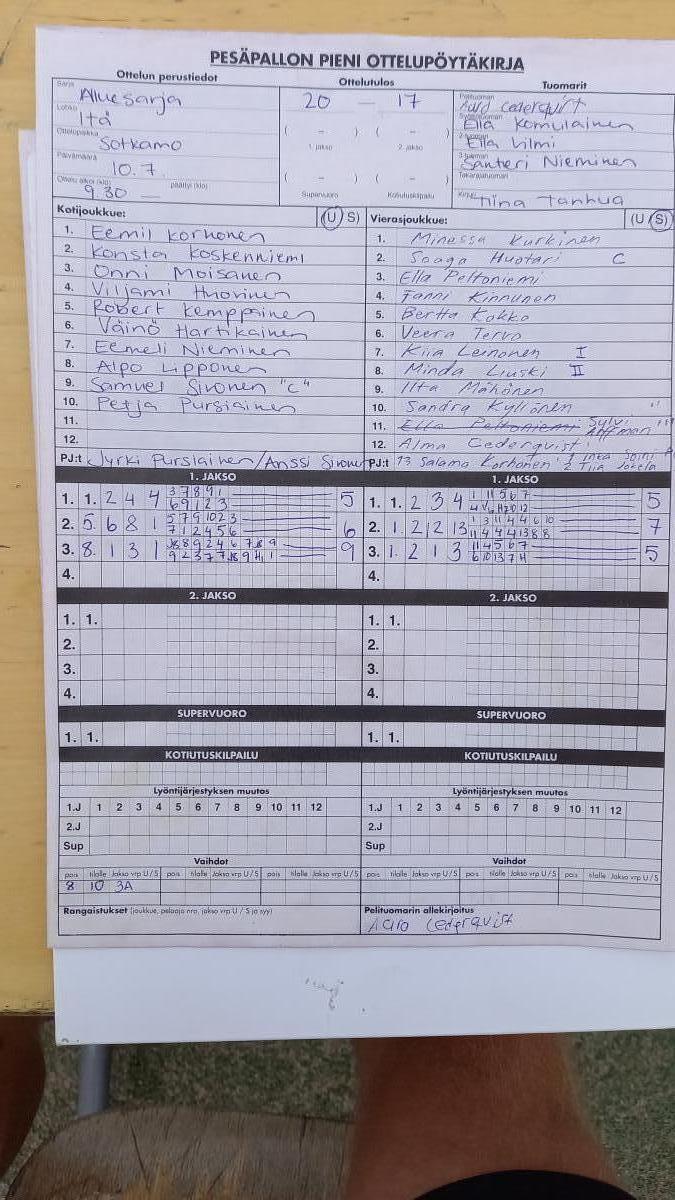 PESÄPALLON PIENI OTTELUPÖYTÄKIRJA
Ottelun perustiedot
Sarja Aluesarja
Lohko Itä
Ottelupaikka Sotkamo
Päivämäärä 10.7.
Ottelu alkoi (klo) 9.30 päättyi (klo)
Ottelutulos
20 — 17
( – ) ( – )
1. jakso 2. jakso
( – ) ( – )
Supervuoro Kotiutuskilpailu
Tuomarit
Cederqvist
Ella Komulainen
Ella Vilmi
Santeri Nieminen
Takarajatuomari
Tiina Tanhua
Kotijoukkue: (U S)
1. Eemil Korhonen
2. Konsta Koskenniemi
3. Onni Moisanen
4. Viljami Huovinen
5. Robert Kemppainen
6. Väinö Hartikainen
7. Eemeli Nieminen
8. Alpo Lipponen
9. Samuel Sironen "C"
10. Petja Pursiainen
11.
12.
PJ:t Jyrki Pursiainen/Anssi Sironen
Vierasjoukkue: (U S)
1. Minessa Kurkinen
2. Saaga Huotari C
3. Ella Peltoniemi
4. Fanni Kinnunen
5. Bertta Kokko
6. Veera Tervo
7. Kiia Leinonen I
8. Minda Liuski II
9. Ilta Mähönen
10. Sandra Kyllönen
11. Ella Peltoniemi Sylvi
12. Alma Cederqvist
PJ:t 13 Salama Korhonen 1 Inka 2 Tiia Jokela
1. JAKSO
1. 1. 2 4 4 3 7 8 9 1 5
6 9 1 2 3
2. 5. 6 8 1 5 7 9 10 2 3 6
7 1 2 4 5 6
3. 8. 1 3 1 9
4.
1. JAKSO
1. 1. 2 3 4 1 11 5 6 7 5
2. 1. 2 12 13 1 3 11 4 4 6 10 7
11 4 4 4 13 8 8
3. 1. 2 1 3 11 4 5 6 7 5
6 10 13 7 11
4.
2. JAKSO
1. 1.
2.
3.
4.
2. JAKSO
1. 1.
2.
3.
4.
SUPERVUORO
1. 1.
SUPERVUORO
1. 1.
KOTIUTUSKILPAILU
KOTIUTUSKILPAILU
Lyöntijärjestyksen muutos
1.J 1 2 3 4 5 6 7 8 9 10 11 12
2.J
Sup
Lyöntijärjestyksen muutos
1.J 1 2 3 4 5 6 7 8 9 10 11 12
2.J
Sup
Vaihdot
pois tilalle Jakso vrp U / S pois tilalle Jakso vrp U / S pois tilalle Jakso vrp U / S
8 10 3A
Vaihdot
pois tilalle Jakso vrp U / S pois tilalle Jakso vrp U / S pois tilalle Jakso vrp U / S
Rangaistukset (joukkue, pelaaja nro, jakso vrp U / S ja syy)
Pelituomarin allekirjoitus
Cederqvist